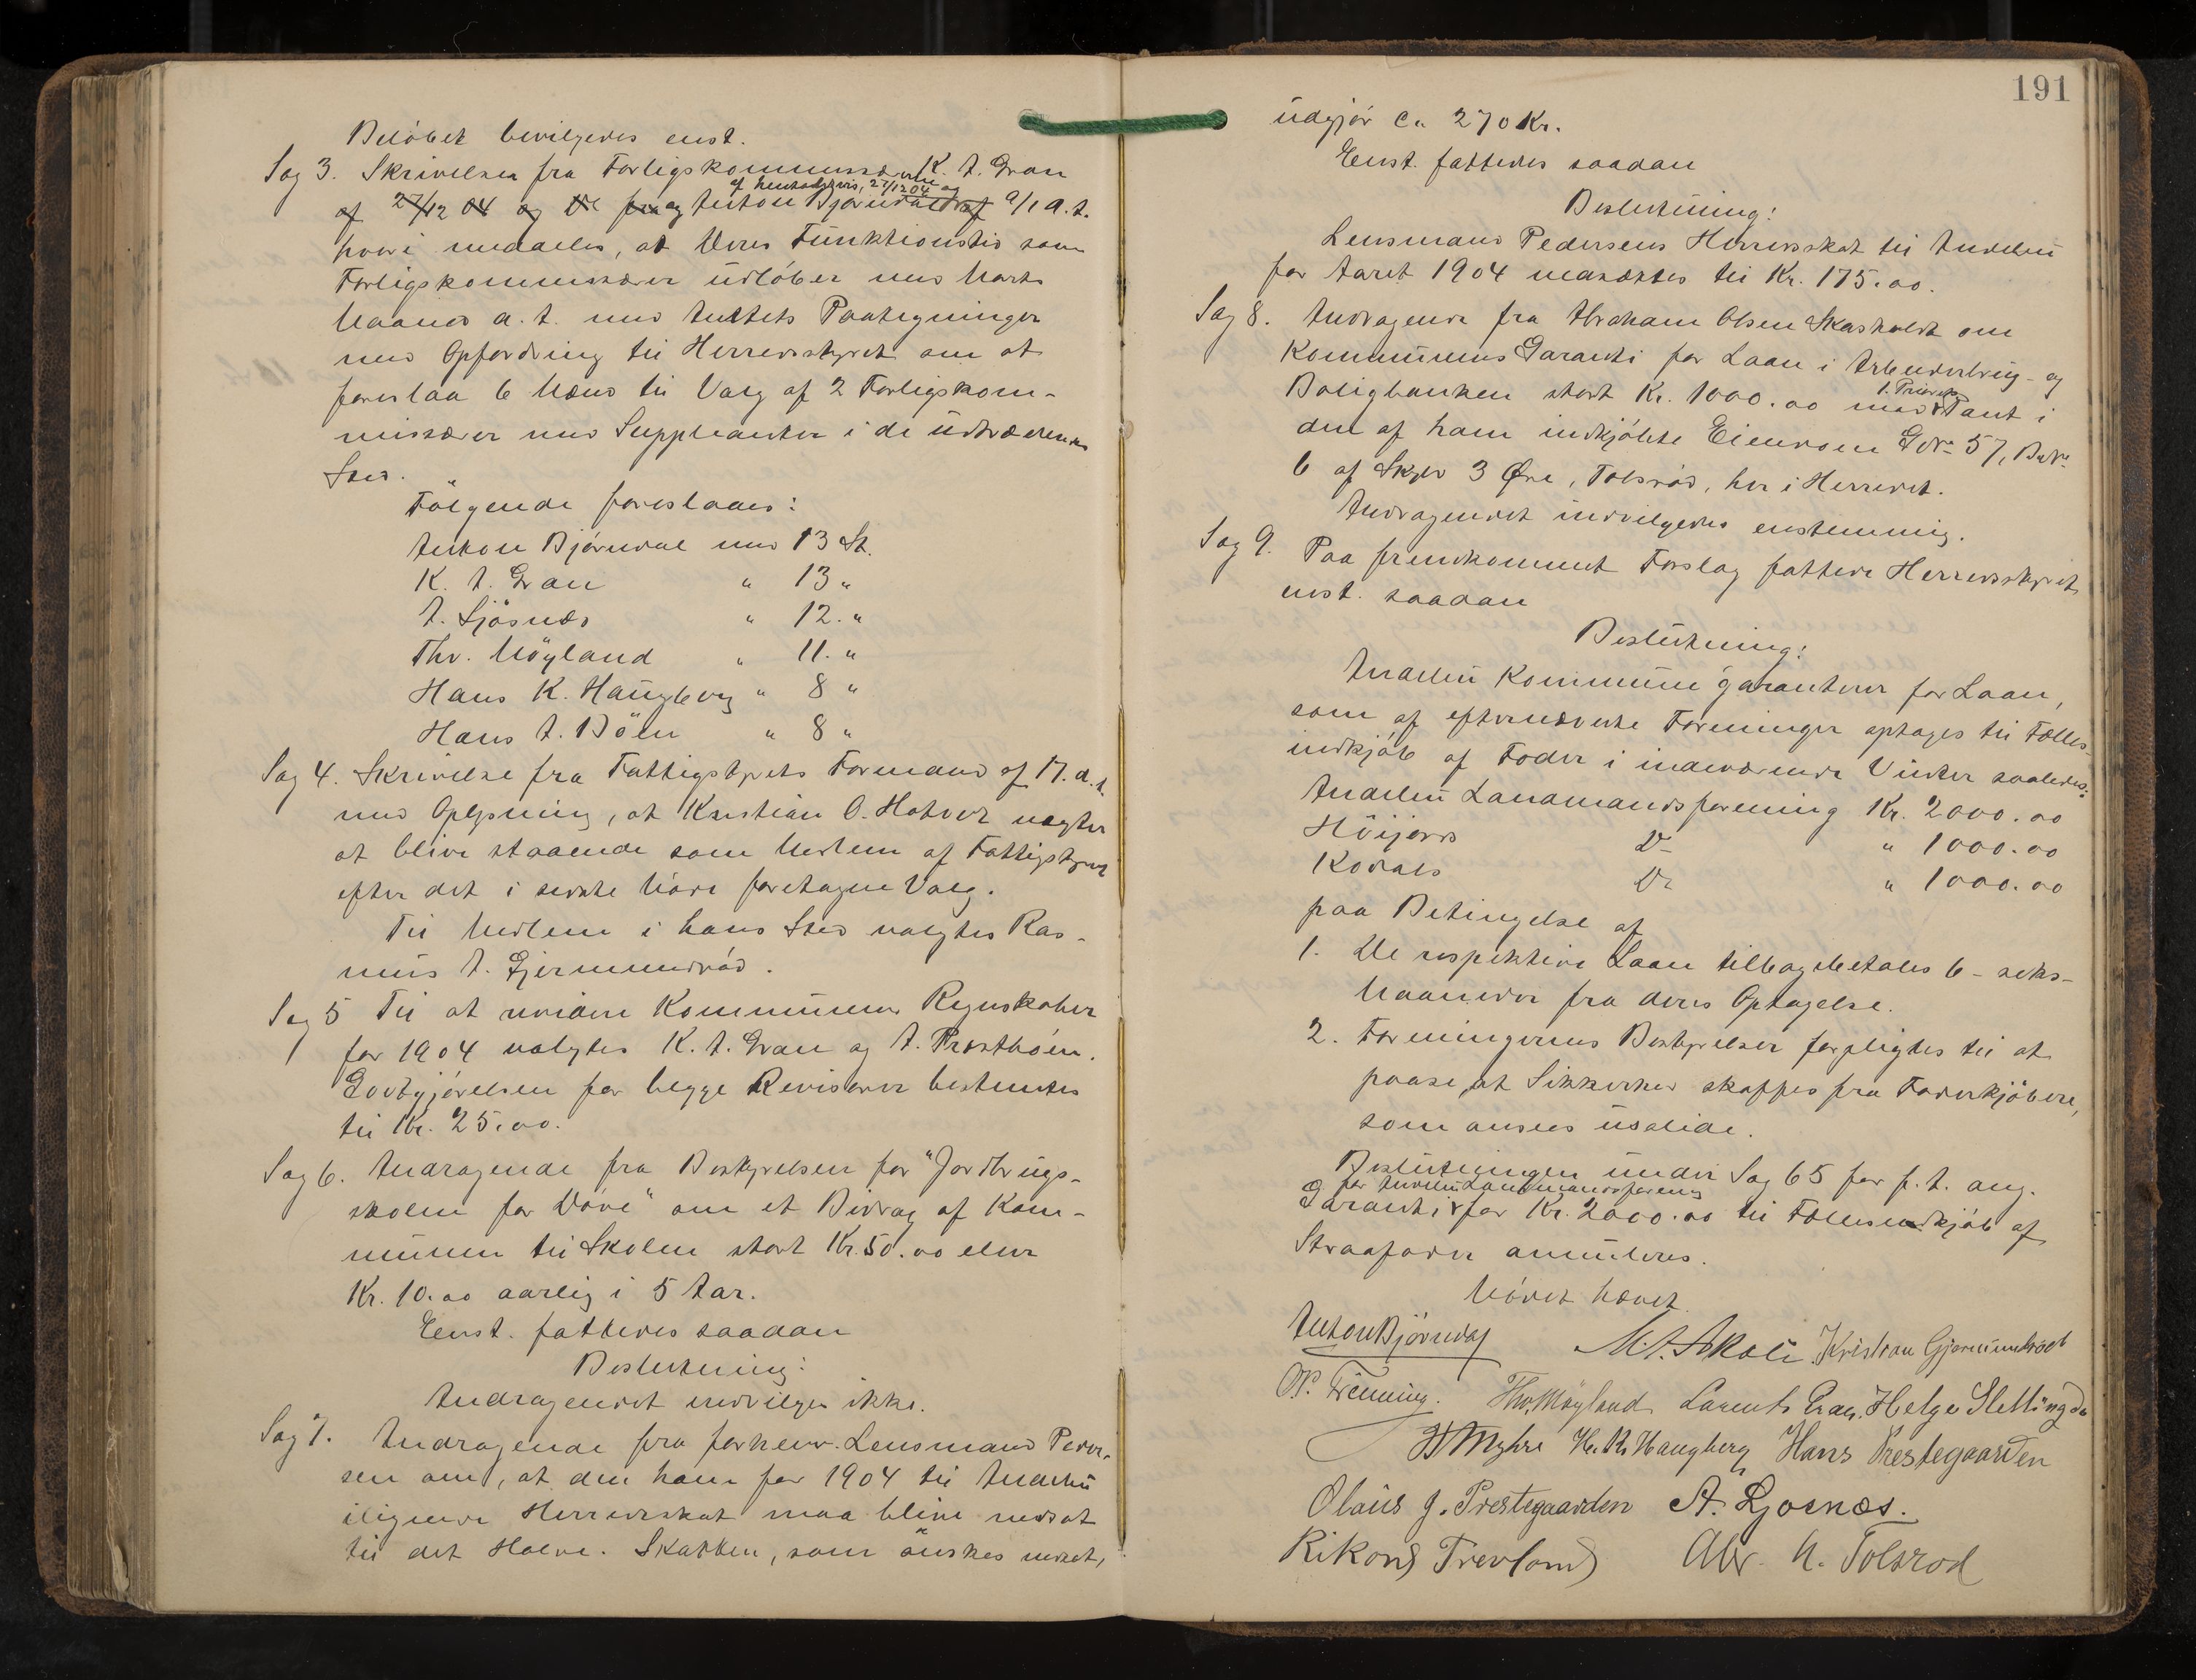 Beløbet bevilgedes enst.
Sag 3. Skrivelser fra Forligskommissærerne K. A. Gran
af henholdsvis, 27/12 04 og
af 27/12 04 og De fra og Anton Bjørndal af 9/1 a.A.
hvori meddeles, at deres Funktionstid som
Forligskommissærer udløber med Marts
Maaned a. A. med Amtets Paategninger
med Opfordring til Herredsstyret om at
foreslaa 6 Mænd til Valg af 2 Forligskom-
missærer med Suppleanter i de udtrædendes
Sted.
Følgende foresloaes:
Anton Bjørndal med 13 St.
K. A. Gran " 13 "
A. Ljøsnæs " 12. "
Thv. Møyland " 11. "
Hans K. Haugberg " 8 "
Hans A. Bøen " 8 "
Sag 4. Skrivelse fra Fattigstyrets Formand af 17. d.A.
med Oplysning, at Kristian O. Hotvet nægter
at blive staaende som Medlem af Fattigstyret
efter det i sidste Møde foretagne Valg.
Til Medlem i hans Sted valgtes Ras-
mus A. Gjermundrød.
Sag 5 Til at revidere Kommunens Regnskaber
for 1904 valgtes K. A. Gran og A. Præstholm.
Godtgjørelsen for begge Revisorer bestemtes
til Kr. 25.00.
Sag 6. Andragende fra Bestyrelsen for "Jordbrugs-
skolen for Døve" om et Bidrag af Kom-
munen til Skolen stort Kr. 50.00 eller
Kr. 10.00 aarlig i 5 Aar.
Eenst. fattedes saadan
Beslutning:
Andragendet indvilges ikke.
Sag 7. Andragende fra forhenv. Lensmand Peder-
sen om, at den ham for 1904 til Andebu
ilignede Herredsskat maa blive nedsat
til det Halve. Skatten, som ønskes nedsat,
191
udgjør ca 270 Kr.
Enst. fattedes saadan
Beslutning:
Lensmand Pedersens Herredsskat til Andebu
for Aaret 1904 nedsættes til Kr. 175.00.
Sag 8. Andragende fra Abraham Olsen Skasholdt om
Kommunens Garanti for Laan i Arbeiderbrug- og
1. Prioritets
Boligbanken stort Kr. 1000.00 med Pant i
den af ham indkjøbte Eiendom GNo 57, BNo
6 af Skyld 3 Øre, Tolsrød, her i Herredet.
Andragendet indvilgedes enstemmig.
Sag 9. Paa fremkommet Forslag fattede Herredsstyret
enst. saadan
Beslutning:
Andebu Kommune garanterer for Laan,
som af efternævnte Foreninger optages til Fælles-
indkjøb af Foder i indeværende Vinter saaledes:
Andebu Landmandsforening Kr. 2000.00
Høijords Do " 1000.00
Kodals Do " 1000.00
paa Betingelse af
1. De respektive Laan tilbagebetales 6 - seks -
Maaneder fra deres Optagelse.
2. Foreningernes Bestyrelser forpligtes til at
paase, at Sikkerhed skaffes fra Foderkjøbere,
som ansees usolide.
Beslutningen under Sag 65 for f. A. ang.
for Andebu Landmandsforening
Garanti for Kr. 2000.00 til Fællesindkjøb af
Straafoder annuleres.
Mødet hævet.
Anton Bjørndal M. A. Skoli. Kristian Gjermundrød
O. P. Flemming. Thv. Møyland Laurents Gran. Helge Slettingda
H Myhre H. K. Haugberg Hans Prestegaarden
Olaus J. Prestegaarden A. Ljosnæs.
Rikord Trevland Abr. H. Tolsrød